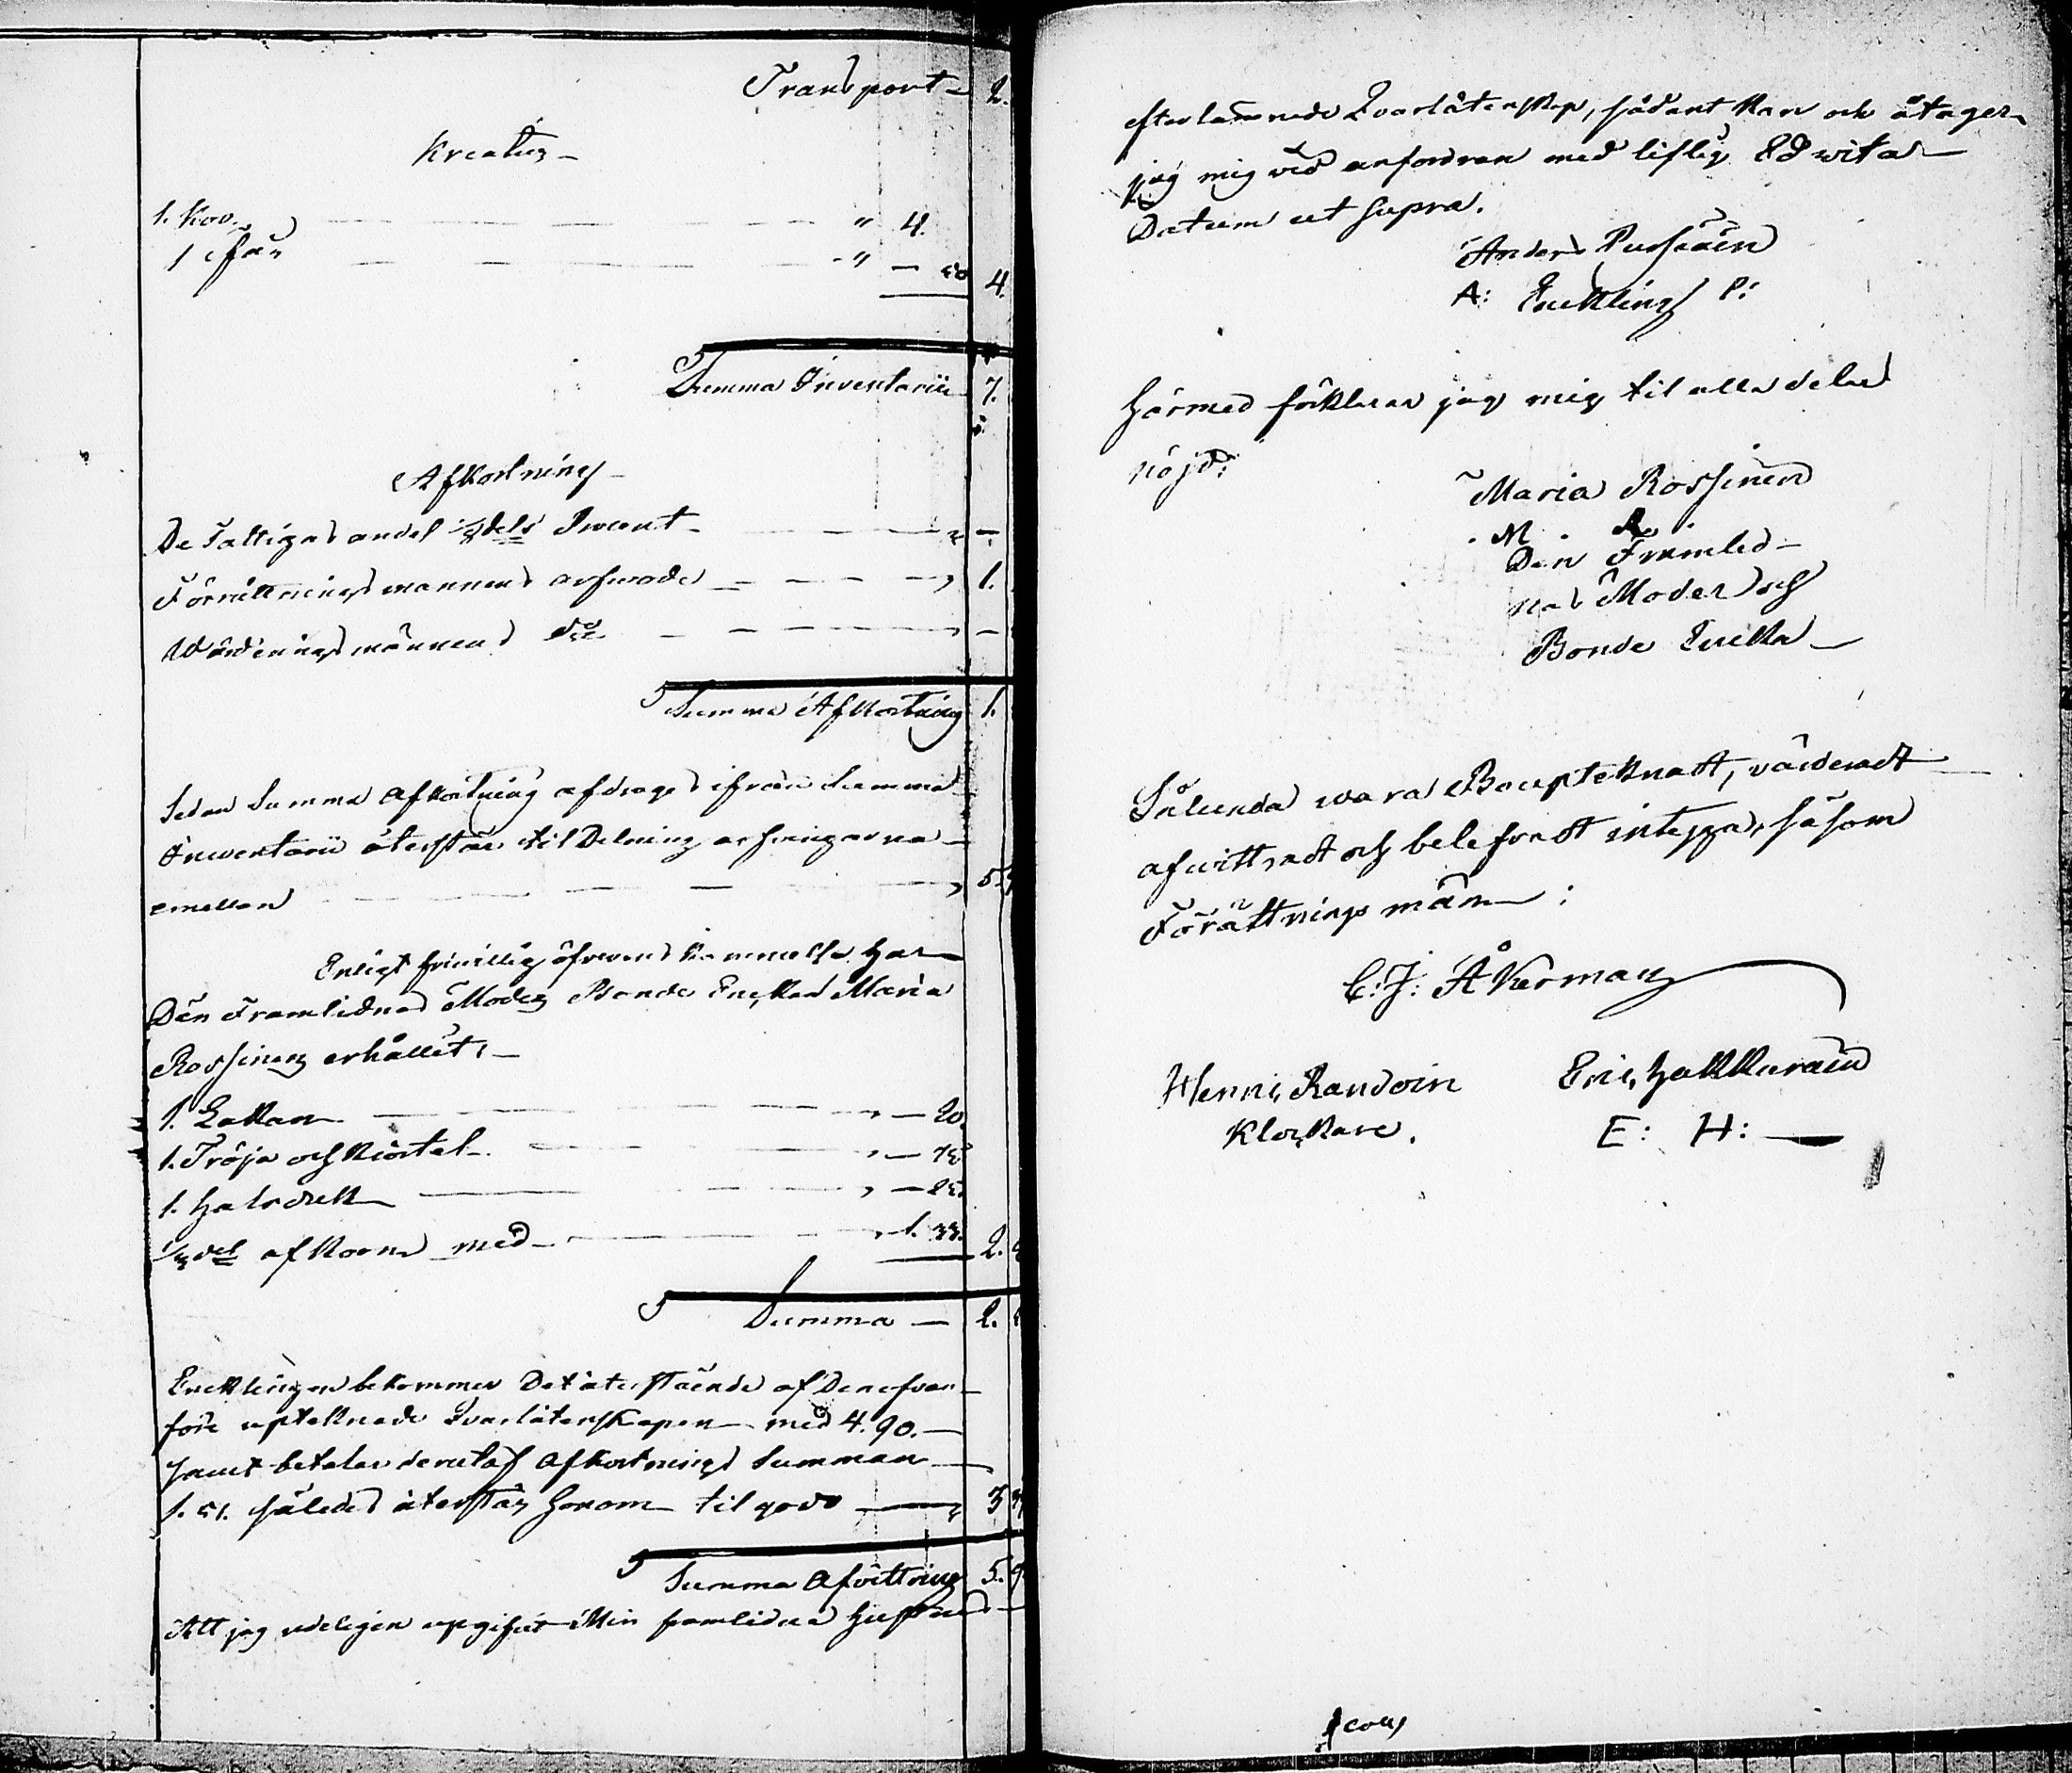 Transport 2.
Kreatur
1. Ko " 4.
1 får " — 50 4.
Summa Inventarii 7.
Afkortning
De Fattigas andel 1/8 dels Procent —
Förrättningsmannens arfwode 1.
Wärderingsmännens d:o —
Summa Afkortning 1.
Sedan Summa Afkortning afdrages ifrån Summa
Inventarii återstår til Delning arfwingarna
emellan 5.
Enligt friwillig öfwerenskommelse har
Den Framlidnas Moder Bonde Enckan Maria
Rossinen erhållet:
1. Lakan — 20.
1. Tröja och Kiortel — 75.
1. halsduk — 25.
1/3 del af Koen med 1. 33. 2.
Summa 2.
Enklingen bekommer Det återstående af Den ofvan
före uptecknade Qvarlåtenskapen med 4. 90.
samt betalar derutaf Afkortnings Summan
1. 51. således återstår honom til godo 3
Summa Afvittring 5. 9
Att jag redeligen uppgifvit Min framlidna hustrus
efterlämnade Qvarlåtenskap, sådant kan och åtager
jag mig vid anfordran med liflig Ed wita
Datum ut supra.
Anders Pursiain
A: Enkling P:
Härmed förklarar jag mig til alla delar
nöjd:
Maria Rossinen
M. R.
Den Framled-
nas Moder och
Bonde Encka
Sålunda wara Bouptecknadt, värderadt
afwittradt och befunnit intyga, såsom
Förättningsmän:
C: J: Åkerman
Henric Randoin Eric Hakkarain
Klockare. E: H: